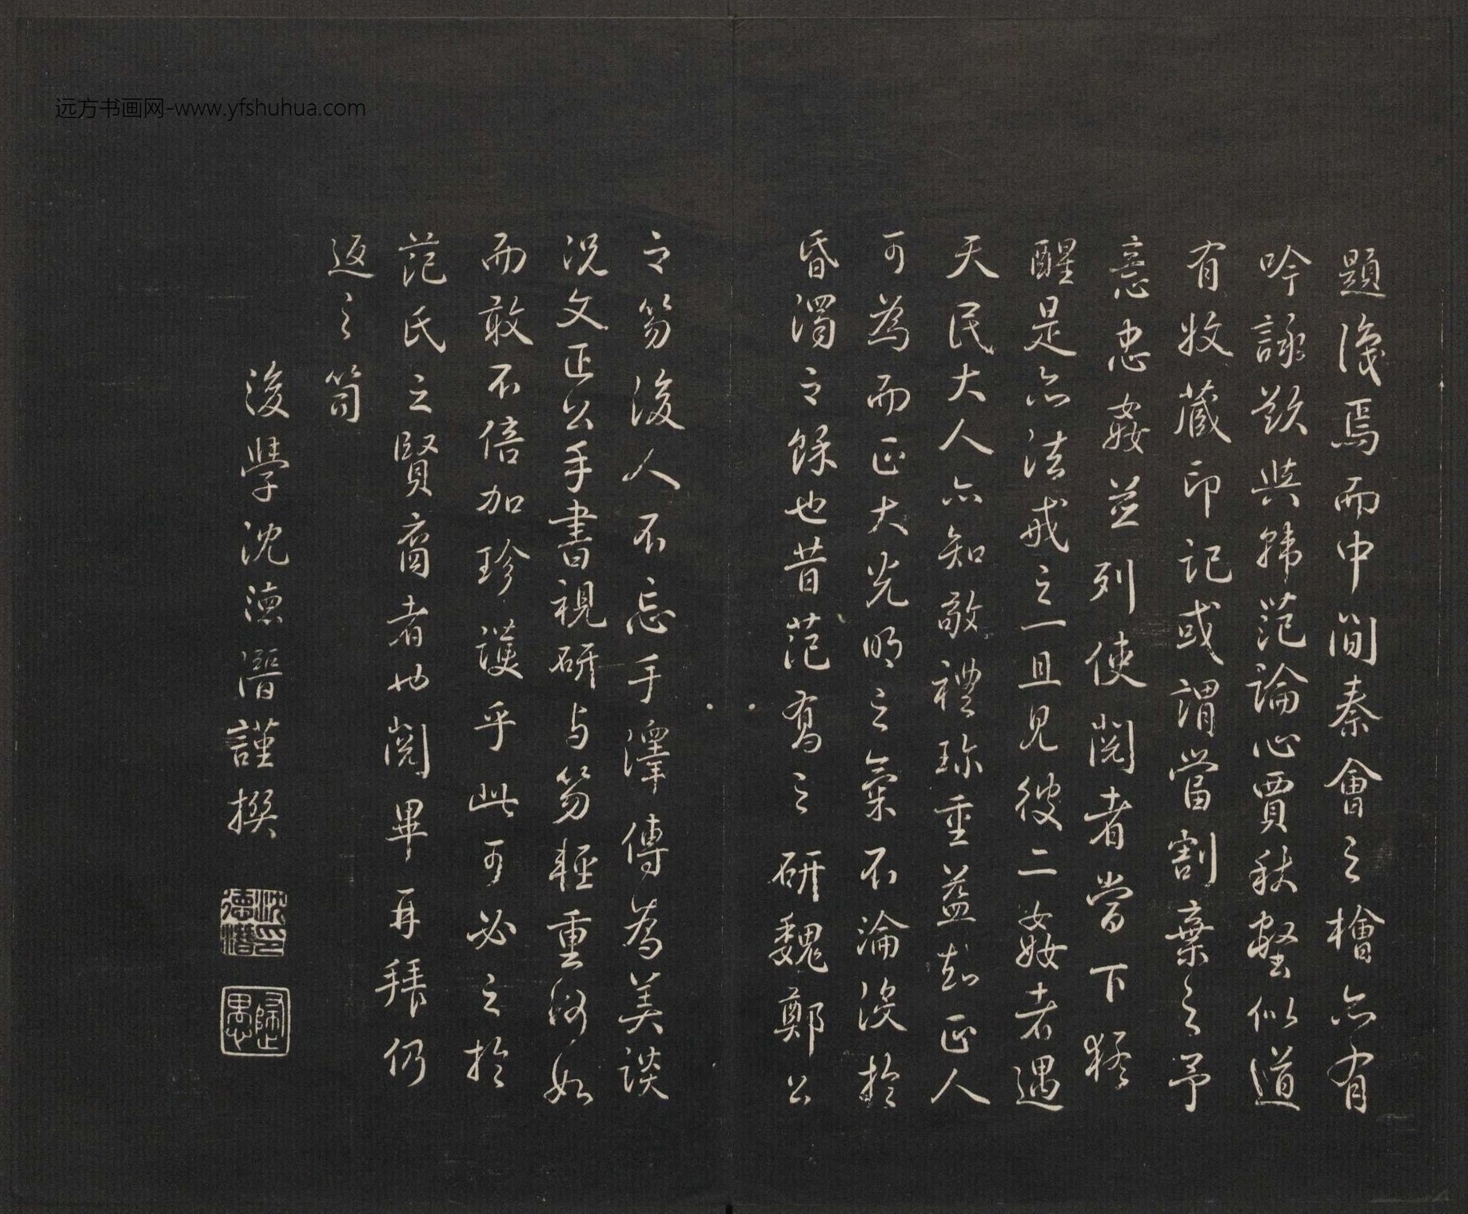 远方书画网-www.yfshuhua.com
題識焉而中間秦會之檜亦有
吟詠歎與韓范論心賈秋壑似道
有收藏印記或謂當割棄之予
意忠姦並列使閱者當下猛
醒是亦法戒之一且見彼二姦者遇
天民大人亦知敬禮珎重益知正人
可為而正大光明之氣不淪沒於
昏濁之餘也昔范喬之研魏鄭公
之笏後人不忘手澤傳為美談
況文正公手書視研与笏輕重何如
而敢不倍加珍護乎此可必之於
范氏之賢裔者也閱畢再拜仍
返之笥
後學沈德潛謹撰
沈德潛印
歸愚